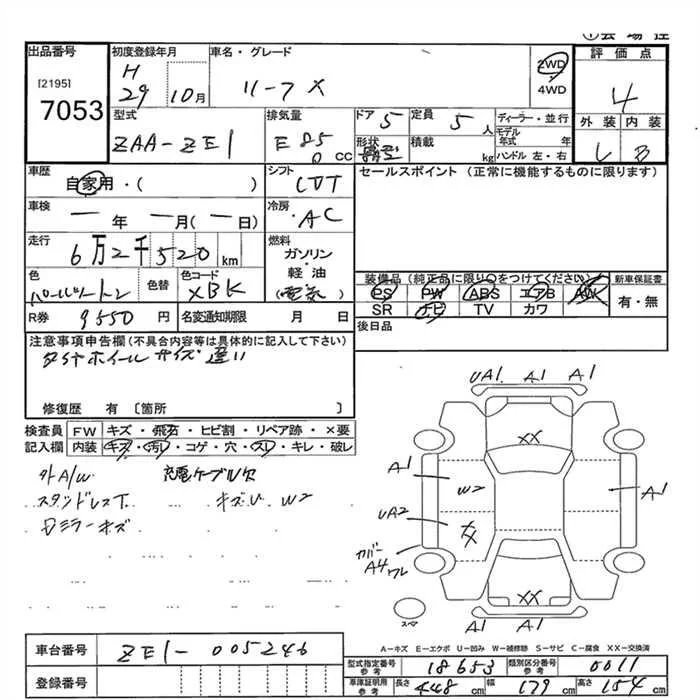 出品番号 初度登録年月 車名・グレード 2WD 評価点
[2195] H 4WD
7053 29 10月 リーフX 4
型式 排気量 ドア 定員 ディーラー・並行 外装 内装
ZAA-ZE1 E85 5 5人 モデル年式 年
0 cc 形状 積載 kg ハンドル 左・右 B
車歴 シフト セールスポイント (正常に機能するものに限ります)
自家用・( ) CDT
車検 冷房
ー年 ー月(ー日) AC
走行 燃料
6万2千520km ガソリン・軽油
(電気)
色 色替 色コード 装備品 (純正品に限り○をつけてください) 新車保証書
パールツートン XBK PS PW ABS エアB AW 有・無
R券 9550円 名変通知期限 月 日 SR ナビ TV カワ
後日品
注意事項申告欄(不具合内容等は具体的に記入して下さい)
タイヤホイールサイズ違い
修復歴 有 〔箇所 〕
検査員 FW キズ・飛石・ヒビ割・リペア跡・×要
記入欄 内装 キズ・汚れ・コゲ・穴・スレ・キレ・破レ
外A/W 充電ケーブル欠
スタッドレス キズU W2
ミラーキズ
UA1 A1 A1
XX
A1 W2 A1
UA2 XX
カバー
A4 ワレ
XX
スペア A1 A1
A－キズ E－エクボ U－凹み W－補修跡 S－サビ C－腐食 XX－交換済
車台番号 ZE1-005246
型式指定番号 18653 類別区分番号 0011
登録番号 車庫証明用参考 長さ 448cm 幅 179cm 高さ 154cm